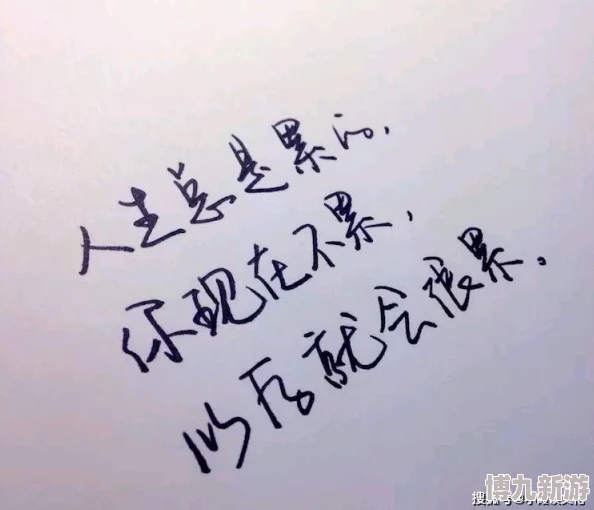 人生总是累的,
你现在不累,
以后就会很累。
博九新游